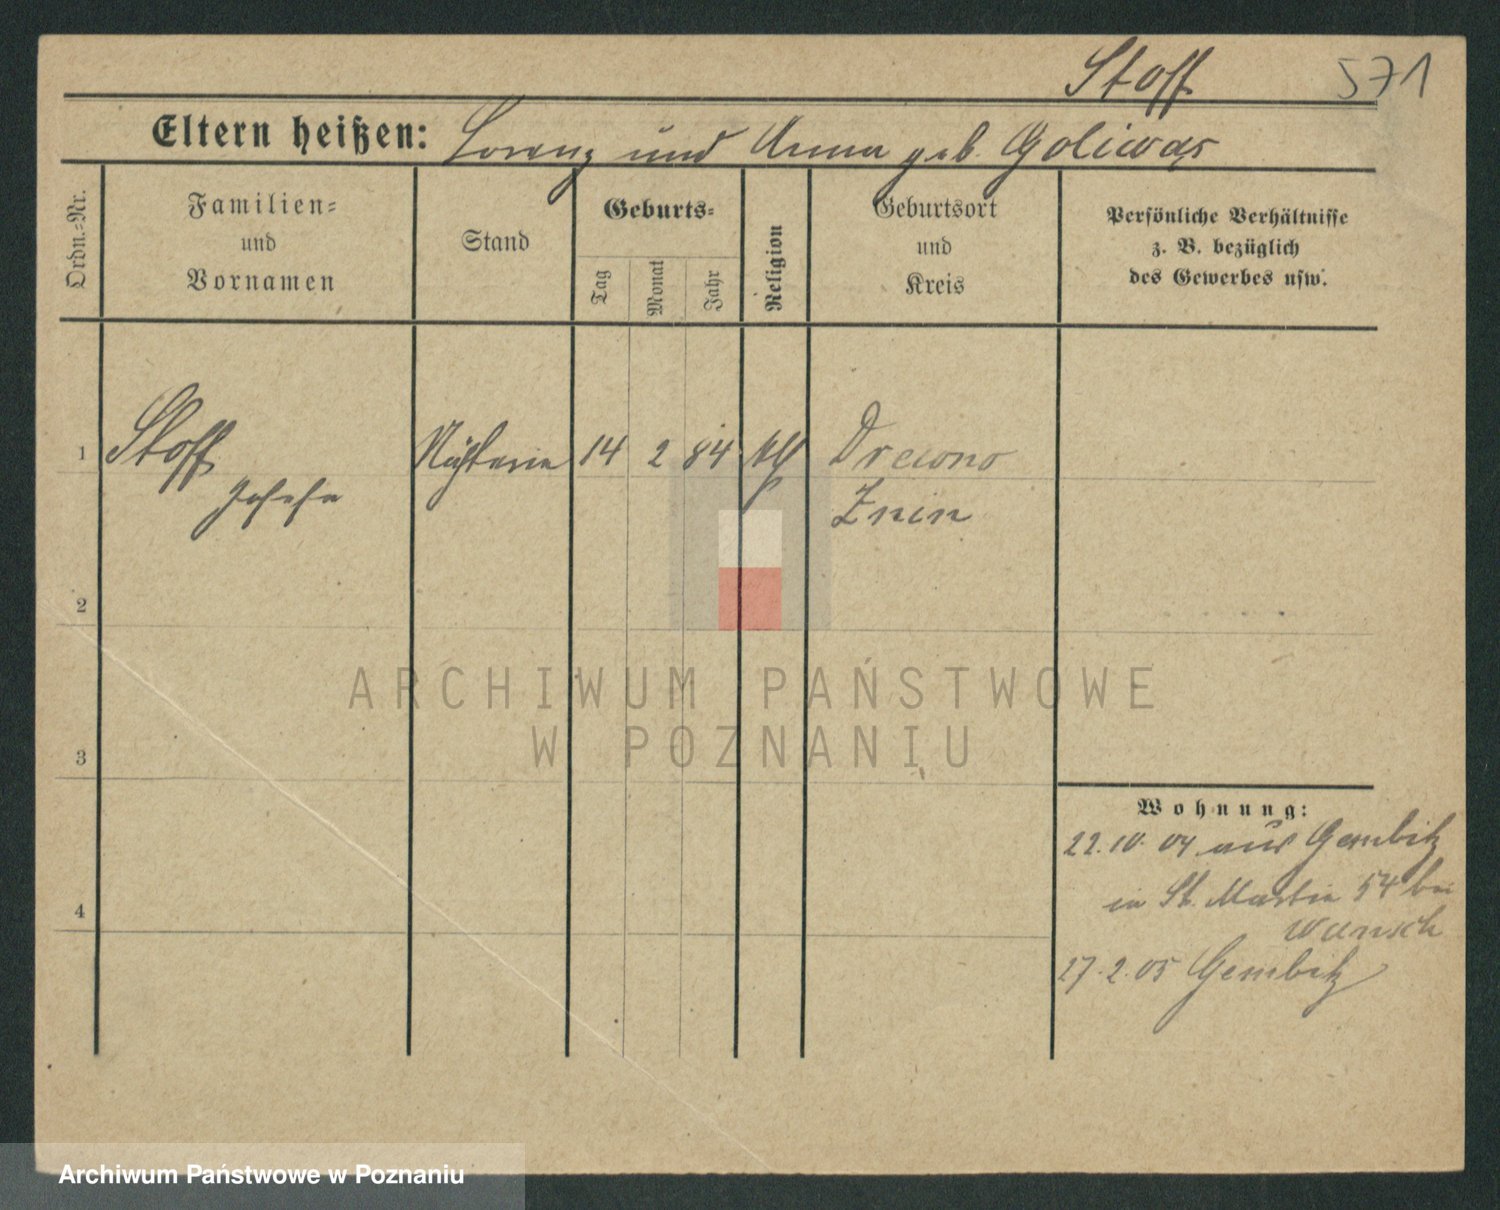 Stoff 571
Eltern heißen: Lorenz und Anna geb. Goliwąs
Ordn.-Nr.
Familien-
und
Vornamen
Stand
Geburts-
Tag
Monat
Jahr
Religion
Geburtsort
und
Kreis
Persönliche Verhältnisse
z. B. bezüglich
des Gewerbes usw.
1 Stoff 14 2 84 Drewno
Josefa Znin
2
3
4
Wohnung:
22.10.04 aus Gembitz
in St. Martin 54 bei
Wunsch
27.2.05 Gembitz
ARCHIWUM PAŃSTWOWE
W POZNANIU
Archiwum Państwowe w Poznaniu